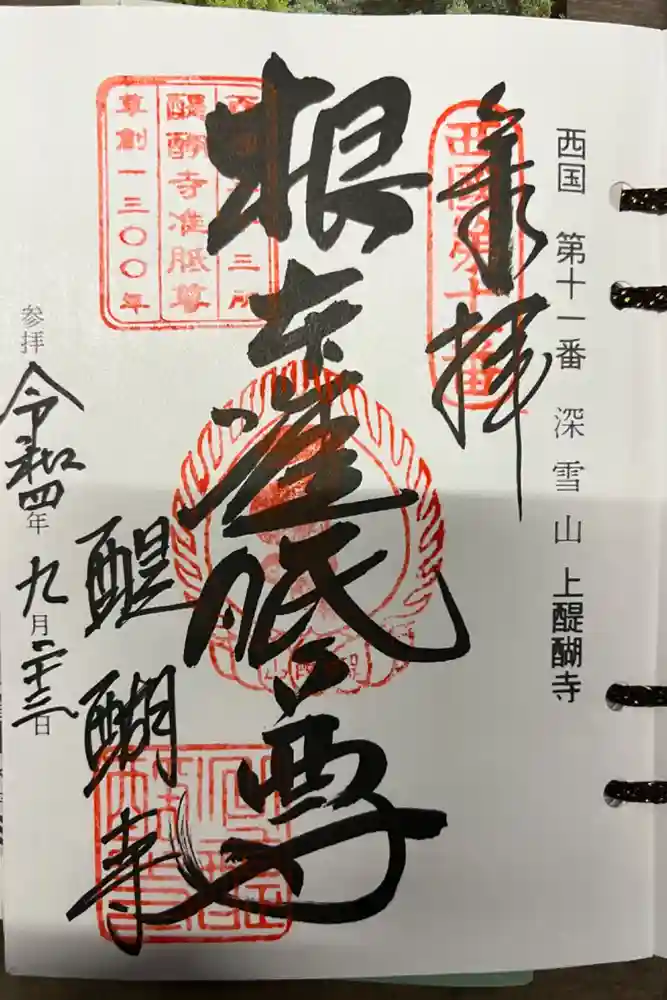 西国 第十一番 深雪山 上醍醐寺
奉拝
西國第十一番
根本准胝尊
西国三十三所
醍醐寺准胝尊
草創一三〇〇年
醍醐寺
参拝 令和四年九月二十三日